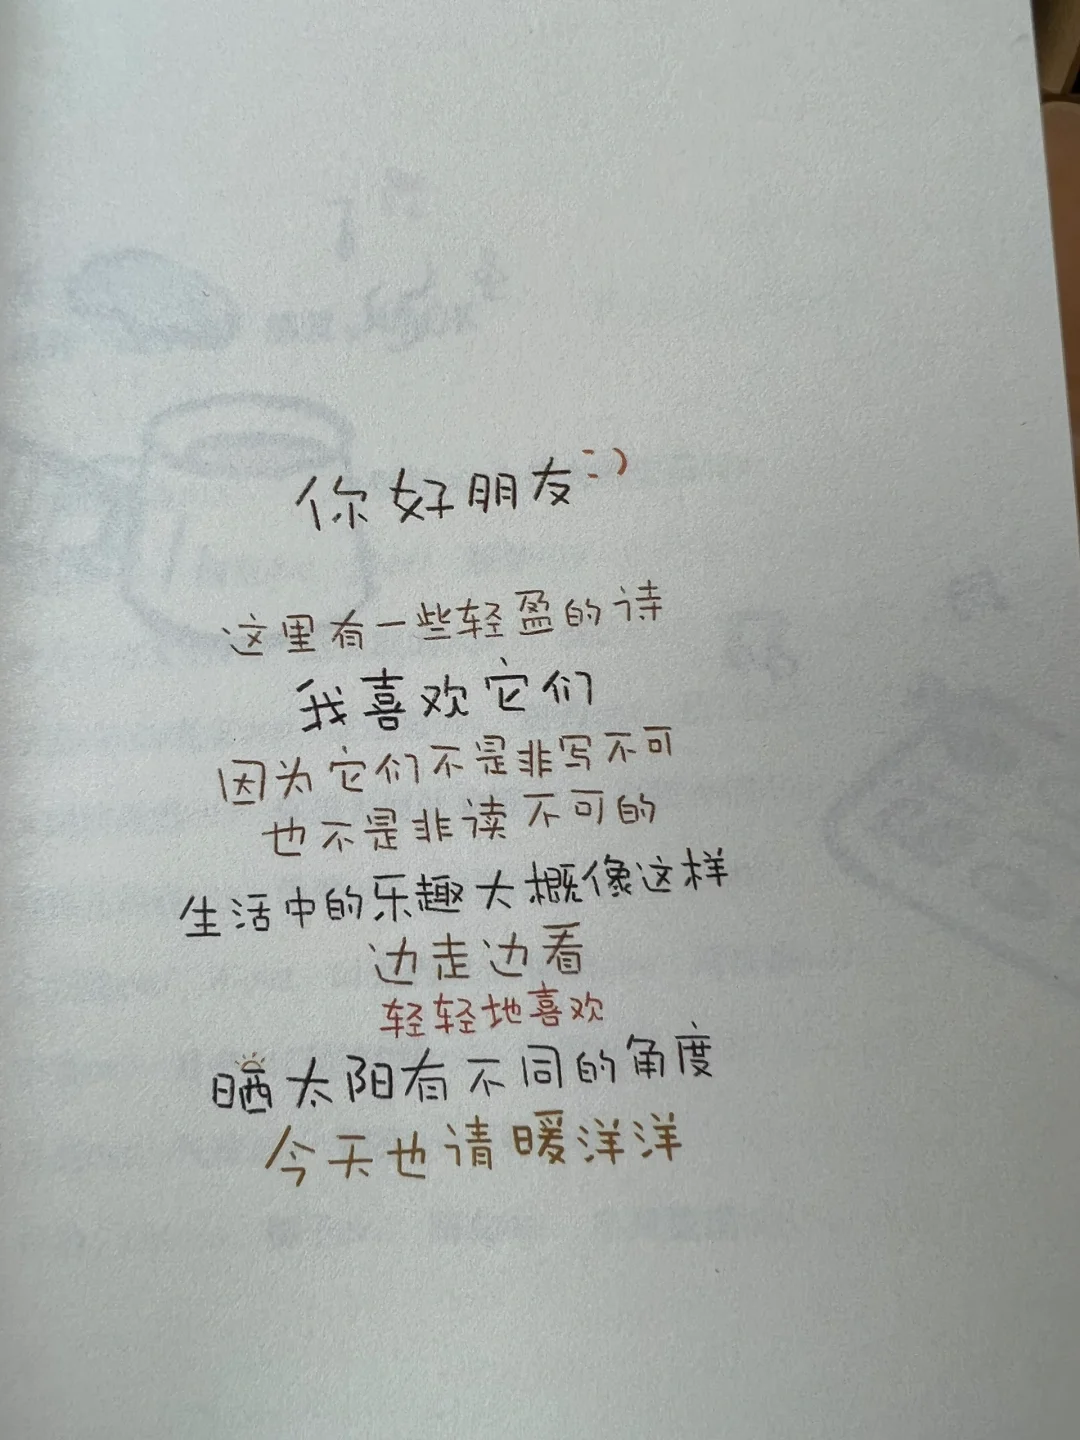 你好朋友:)
这里有一些轻盈的诗
我喜欢它们
因为它们不是非写不可
也不是非读不可的
生活中的乐趣大概像这样
边走边看
轻轻地喜欢
晒太阳有不同的角度
今天也请暖洋洋